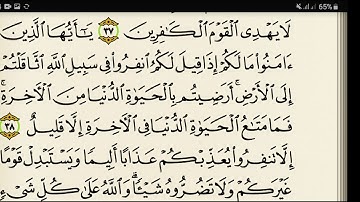 65%
لَا يَهْدِى ٱلْقَوْمَ ٱلْكَٰفِرِينَ ٣٧ يَٰٓأَيُّهَا ٱلَّذِينَ
ءَامَنُوا۟ مَا لَكُمْ إِذَا قِيلَ لَكُمُ ٱنفِرُوا۟ فِى سَبِيلِ ٱللَّهِ ٱثَّاقَلْتُمْ
إِلَى ٱلْأَرْضِ ۚ أَرَضِيتُم بِٱلْحَيَوٰةِ ٱلدُّنْيَا مِنَ ٱلْءَاخِرَةِ ۚ
فَمَا مَتَٰعُ ٱلْحَيَوٰةِ ٱلدُّنْيَا فِى ٱلْءَاخِرَةِ إِلَّا قَلِيلٌ ٣٨
إِلَّا تَنفِرُوا۟ يُعَذِّبْكُمْ عَذَابًا أَلِيمًا وَيَسْتَبْدِلْ قَوْمًا
غَيْرَكُمْ وَلَا تَضُرُّوهُ شَيْـًٔا ۗ وَٱللَّهُ عَلَىٰ كُلِّ شَىْءٍ